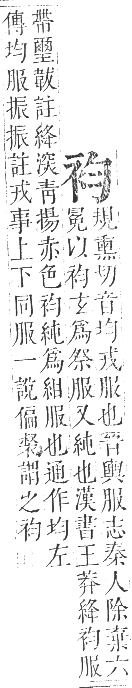 袀
規熏切音均戎服也晉輿服志秦人除棄六
冕以袀玄爲祭服又純也漢書王莽絳袀服
帶璽韍註絳深青揚赤色袀純爲紺服也通作均左
傳均服振振註戎事上下同服一說偏裻謂之袀